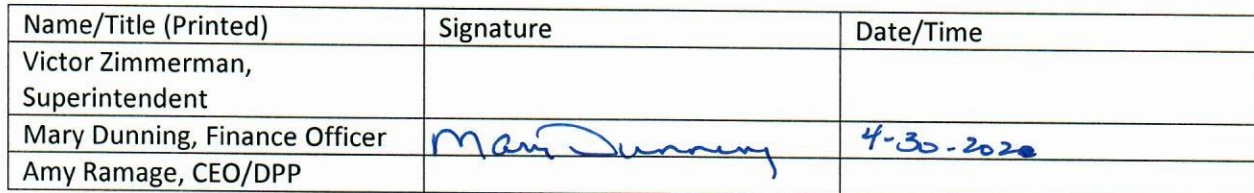 Name/Title (Printed) Signature Date/Time
Victor Zimmerman,
Superintendent
Mary Dunning, Finance Officer Mary Dunning 4-30-2020
Amy Ramage, CEO/DPP